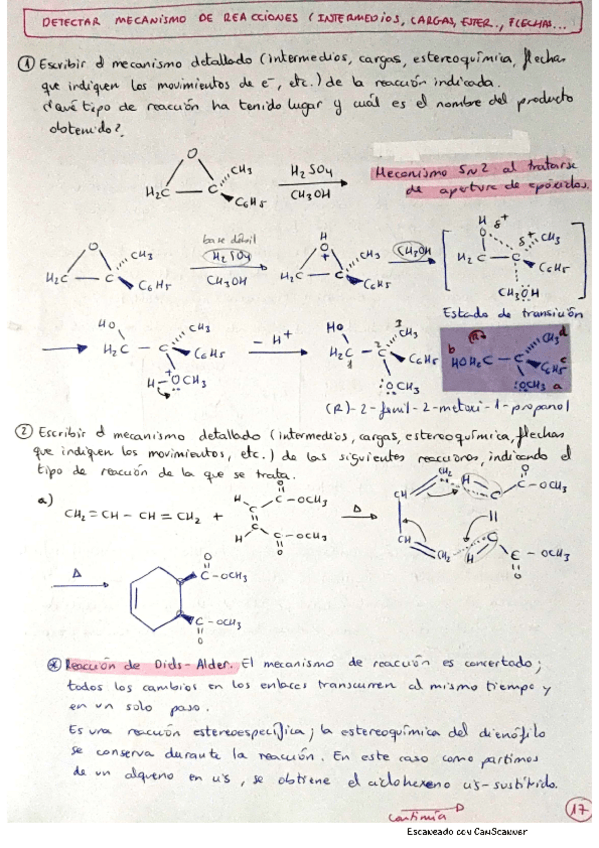 DETECTAR MECANISMO DE REACCIONES (INTERMEDIOS, CARGAS, ESTER., FLECHAS...
① Escribir el mecanismo detallado (intermedios, cargas, estereoquímica, flechas
que indiquen los movimientos de e⁻, etc.) de la reacción indicada.
¿Qué tipo de reacción ha tenido lugar y cuál es el nombre del producto
obtenido?.
O
H₂C — C CH₃ C₆H₅
H₂SO₄
CH₃OH
Mecanismo SN2 al tratarse
de apertura de epóxidos.
O
H₂C — C CH₃ C₆H₅
base débil
H₂SO₄
CH₃OH
H
O +
H₂C — C CH₃ C₆H₅
CH₃OH
H
O δ+
H₂C — C δ+ CH₃ C₆H₅
CH₃ÖH
Estado de transición
HO
H₂C — C CH₃ C₆H₅
H — OCH₃ +
- H⁺
HO 3
H₂C — C CH₃ C₆H₅
1 2
:OCH₃
(R)
b HOH₂C — C CH₃ d
C₆H₅ c
:OCH₃ a
(R)-2-fenil-2-metoxi-1-propanol
② Escribir el mecanismo detallado (intermedios, cargas, estereoquímica, flechas
que indiquen los movimientos, etc.) de las siguientes reacciones, indicando el
tipo de reacción de la que se trata.
a)
CH₂=CH-CH=CH₂ +
H C C-OCH₃ O
H C C-OCH₃ O
Δ
CH₂ CH CH CH₂
H C C-OCH₃ O
H C C-OCH₃ O
Δ
O
C-OCH₃
C-OCH₃
O
* Reacción de Diels-Alder. El mecanismo de reacción es concertado;
todos los cambios en los enlaces transcurren al mismo tiempo y
en un solo paso.
Es una reacción estereoespecífica; la estereoquímica del dienófilo
se conserva durante la reacción. En este caso como partimos
de un alqueno en cis, se obtiene el ciclohexeno cis-sustituido.
continúa
17
Escaneado con CamScanner